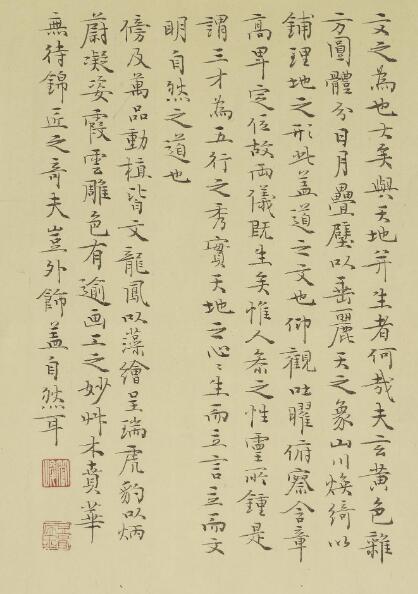 文之為也大矣與天地并生者何哉夫玄黃色雜
方圓體分日月疊璧以垂麗天之象山川煥綺以
鋪理地之形此蓋道之文也仰觀吐曜俯察含章
高卑定位故兩儀既生矣惟人叅之性靈所鍾是
謂三才為五行之秀實天地之心〻生而立言立而文
明自然之道也
傍及萬品動植皆文龍鳳以藻繪呈瑞虎豹以炳
蔚凝姿霞雲雕色有逾画工之妙艸木賁華
無待錦匠之奇夫豈外飾蓋自然耳